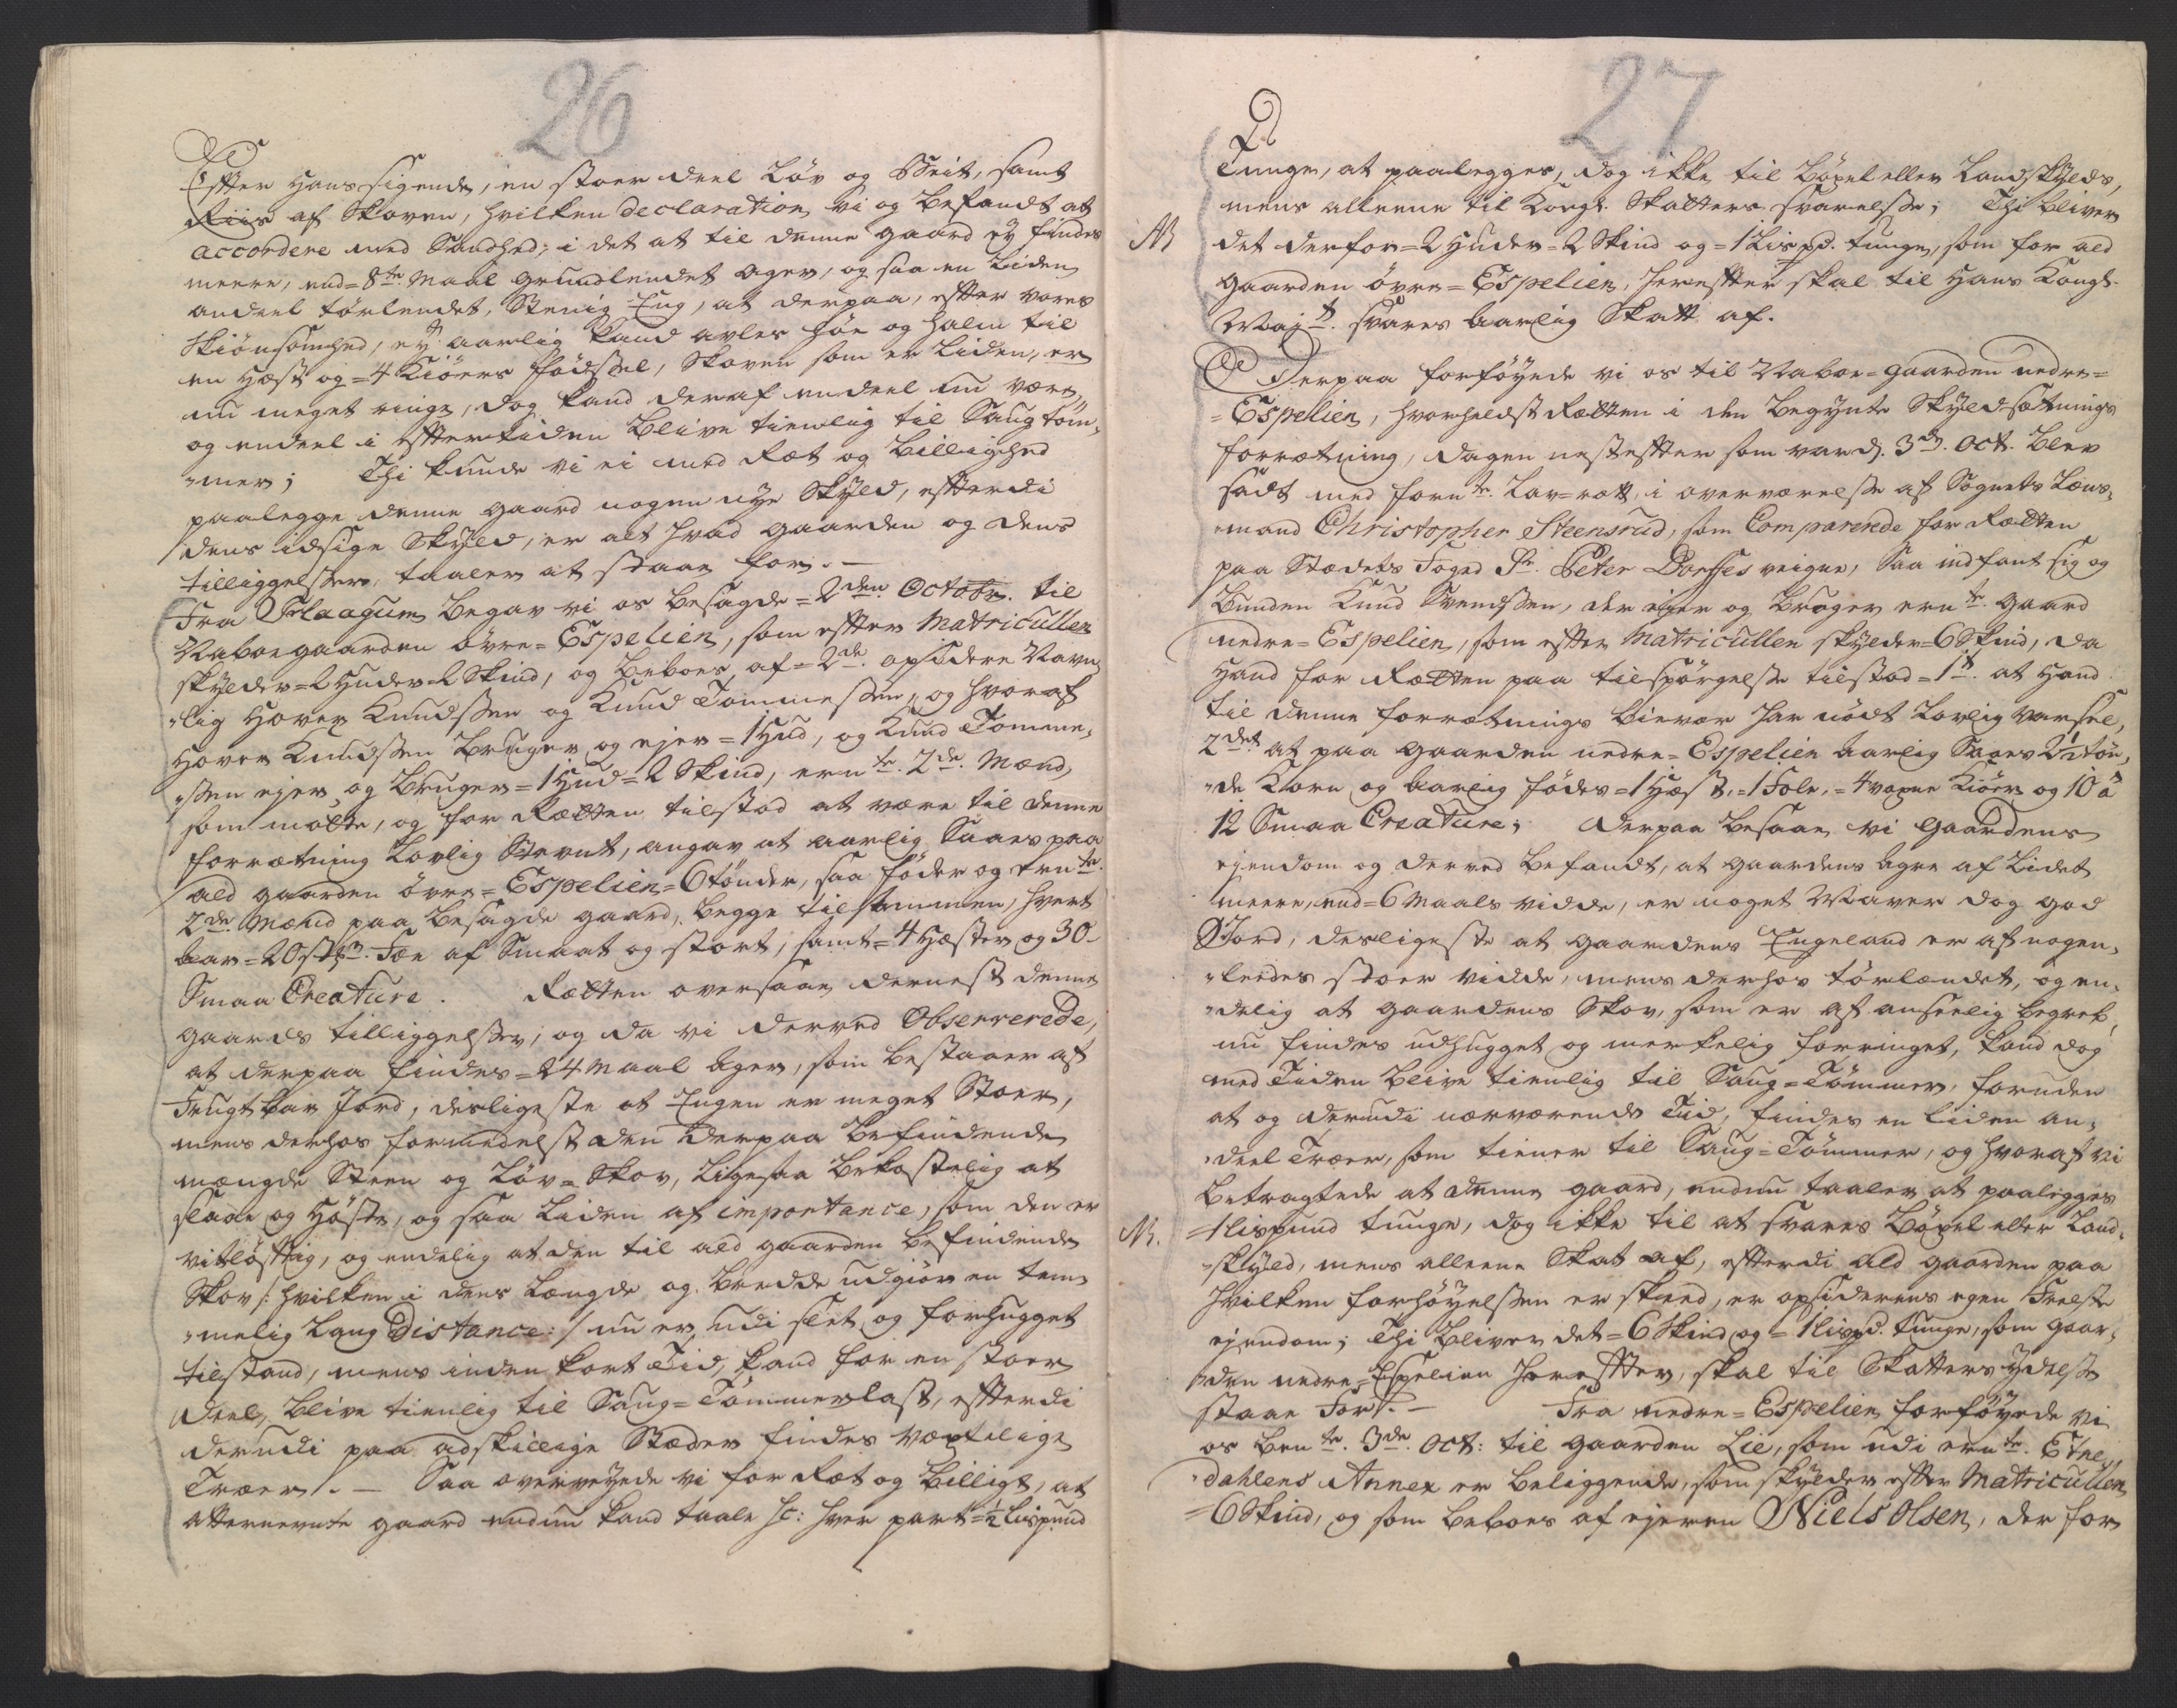 26
Effter Hans sigende, en stoer deel Löv og Beit, samt
Riis af Skoven, hvilken declaration vi og befandt at
accordere med Sandhed; i det at til denne gaard ey findes
meere, end = 8te Maal grundlendet ager, og saa en Liden
andeel tørlendet, Stenig Eng, at derpaa, effter vores
Skiönsomhed, ey aarlig kand avles Höe og Halm til
en Hæst og = 4 Kiörs födssel, Skoven som er Liden, er
nu meget ringe, dog kand deraf endeel nu være,
og endeel i Efftertiden blive tienlig til Saug töm-
mer; Thi kunde vi ei med Ræt og Billighed
paalegge denne gaard nogen nye Skyld, effterdi
dens idsige Skyld, er alt hvad gaarden og dens
tilliggelsser, taaler at staae for. -
Fra Flaagum begav vi os besagde = 2den Octobr. til
Naboegaarden övre = Espelien, som effter Matricullen
skylder = 2 Huder = 2 Skind, og beboes af = 2de opsidere Navn-
lig Hover Knudssen og Knud Tommessen, og hvoraf
Hover Knudssen bruger og ejer = 1 Hud, og Knud Tomme-
ssen ejer og bruger = 1 Hud = 2 Skind, ernte 2de Mænd,
som mötte, og for Rætten tilstod at være til denne
forrætning Lovlig Stevnt, angav at aarlig Saaes paa
ald gaarden övre = Espelien = 6 tönder, saa föder og ernte
2de Mænd paa besagde gaard, begge tilsammen, hvert
aar = 20 stkr. Fæe af Smaat og stort, samt = 4 Hæster og 30
Smaa Creature. Rætten oversaae dernest denne
gaards tilliggelsser, og da vi derved Observerede,
at derpaa findes = 24 Maal ager, som bestaaer af
Frugtbar Jord, desligeste at Engen er meget Stoer,
mens derhos formedelst den derpaa befindende
mængde Steen og Löv = Skov, ligesaa bekostelig at
slaae og Höste, og saa Liden af importance, som den er
vitlöfftig, og endelig at den til ald gaarden befindende
Skov /: hvilken i dens Længde og bredde udgiör en tem-
melig Lang Distance: / nu er udi slet og forhugget
tilstand, mens inden kort Tid, kand for en stoer
deel, blive tienlig til Saug = Tömmerlast, effterdi
derudi paa adskillige Stæder findes væxtelige
Træer. - Saa overveyede vi for Ræt og billigt, at
Atternevnte gaard endnu kand taale sc: hver part = ½ Lispund
27
Tunge, at paalegges, dog ikke til Böxel eller Landskylds,
mens alleene til Kongl. Skatters svarelsse; Thi bliver
NB det derfor = 2 Huder = 2 Skind og = 1 Lispd. tunge, som for ald
gaarden övre = Espelien, hereffter skal til Hans Kongl.
Mait. svares aarlig Skatt af.
Derpaa forföyede vi os til Naboe = gaarden nedre =
= Espelien, hvorheldst Rætten i den begynte Skyldsætnings
forrætning, dagen nesteffter som var d. 3de Oct. blev
sadt med fornte Lav = rætt, i overværelsse af Sognets Læns-
mand Christopher Steensrud, som Comparerede for Rætten
paa Stædets Foged Sr. Peter Dorffes veigne, Saa indfant sig og
bunden Knud Svendssen, der ejer og bruger ernte gaard
nedre = Espelien, som effter Matricullen skylder = 6 Skind, da
Hand for Rætten paa tilspörgelsse tilstod = 1t. at Hand
til denne forrætnings bievær har nödt Lovlig Varsel,
2det at paa gaarden nedre = Espelien aarlig Saaes 2½ tön-
de Korn og aarlig födes = 1 Hæst, = 1 Fole, = 4 voxne Kiör og 10 á
12 Smaa Creature; Derpaa besaae vi gaardens
ejendom og derved befandt, at gaardens agre af Lidet
meere, end = 6 Maals vidde, er noget Mager dog god
Jord, desligeste at gaardens Engeland er af nogen-
leedes stoer vidde, mens derhos törlændet, og en-
delig at gaardens Skov, som er af anseelig begreb,
nu findes udhugget og merkelig forringet, kand dog
med Tiden blive tienlig til Saug = Tömmer, foruden
at og derudi nærværende Tid, findes en liden an-
deel Træer, som tiener til Saug = Tömmer, og hvoraf vi
betragtede at denne gaard, endnu taaler at paalegges
NB. = 1 Lispund tunge, dog ikke til at svares Böxel eller Land-
skyld, mens alleene Skat af, effterdi ald gaarden paa
hvilken forhöyelssen er skeed, er opsiderens egen Freelste
ejendom; Thi bliver det = 6 Skind og = 1 Lispd. tunge, som gaar-
den nedre = Espelien hereffter, skal til Skatters ydelsse
staae For. - Fra nedre = Espelien forföyede vi
os bente 3de Oct: til gaarden Lie, som udi ernte Etne-
dahlens Annex er beliggende, som skylder effter Matricullen
= 6 Skind, og som beboes af ejeren Niels Olsen, der for